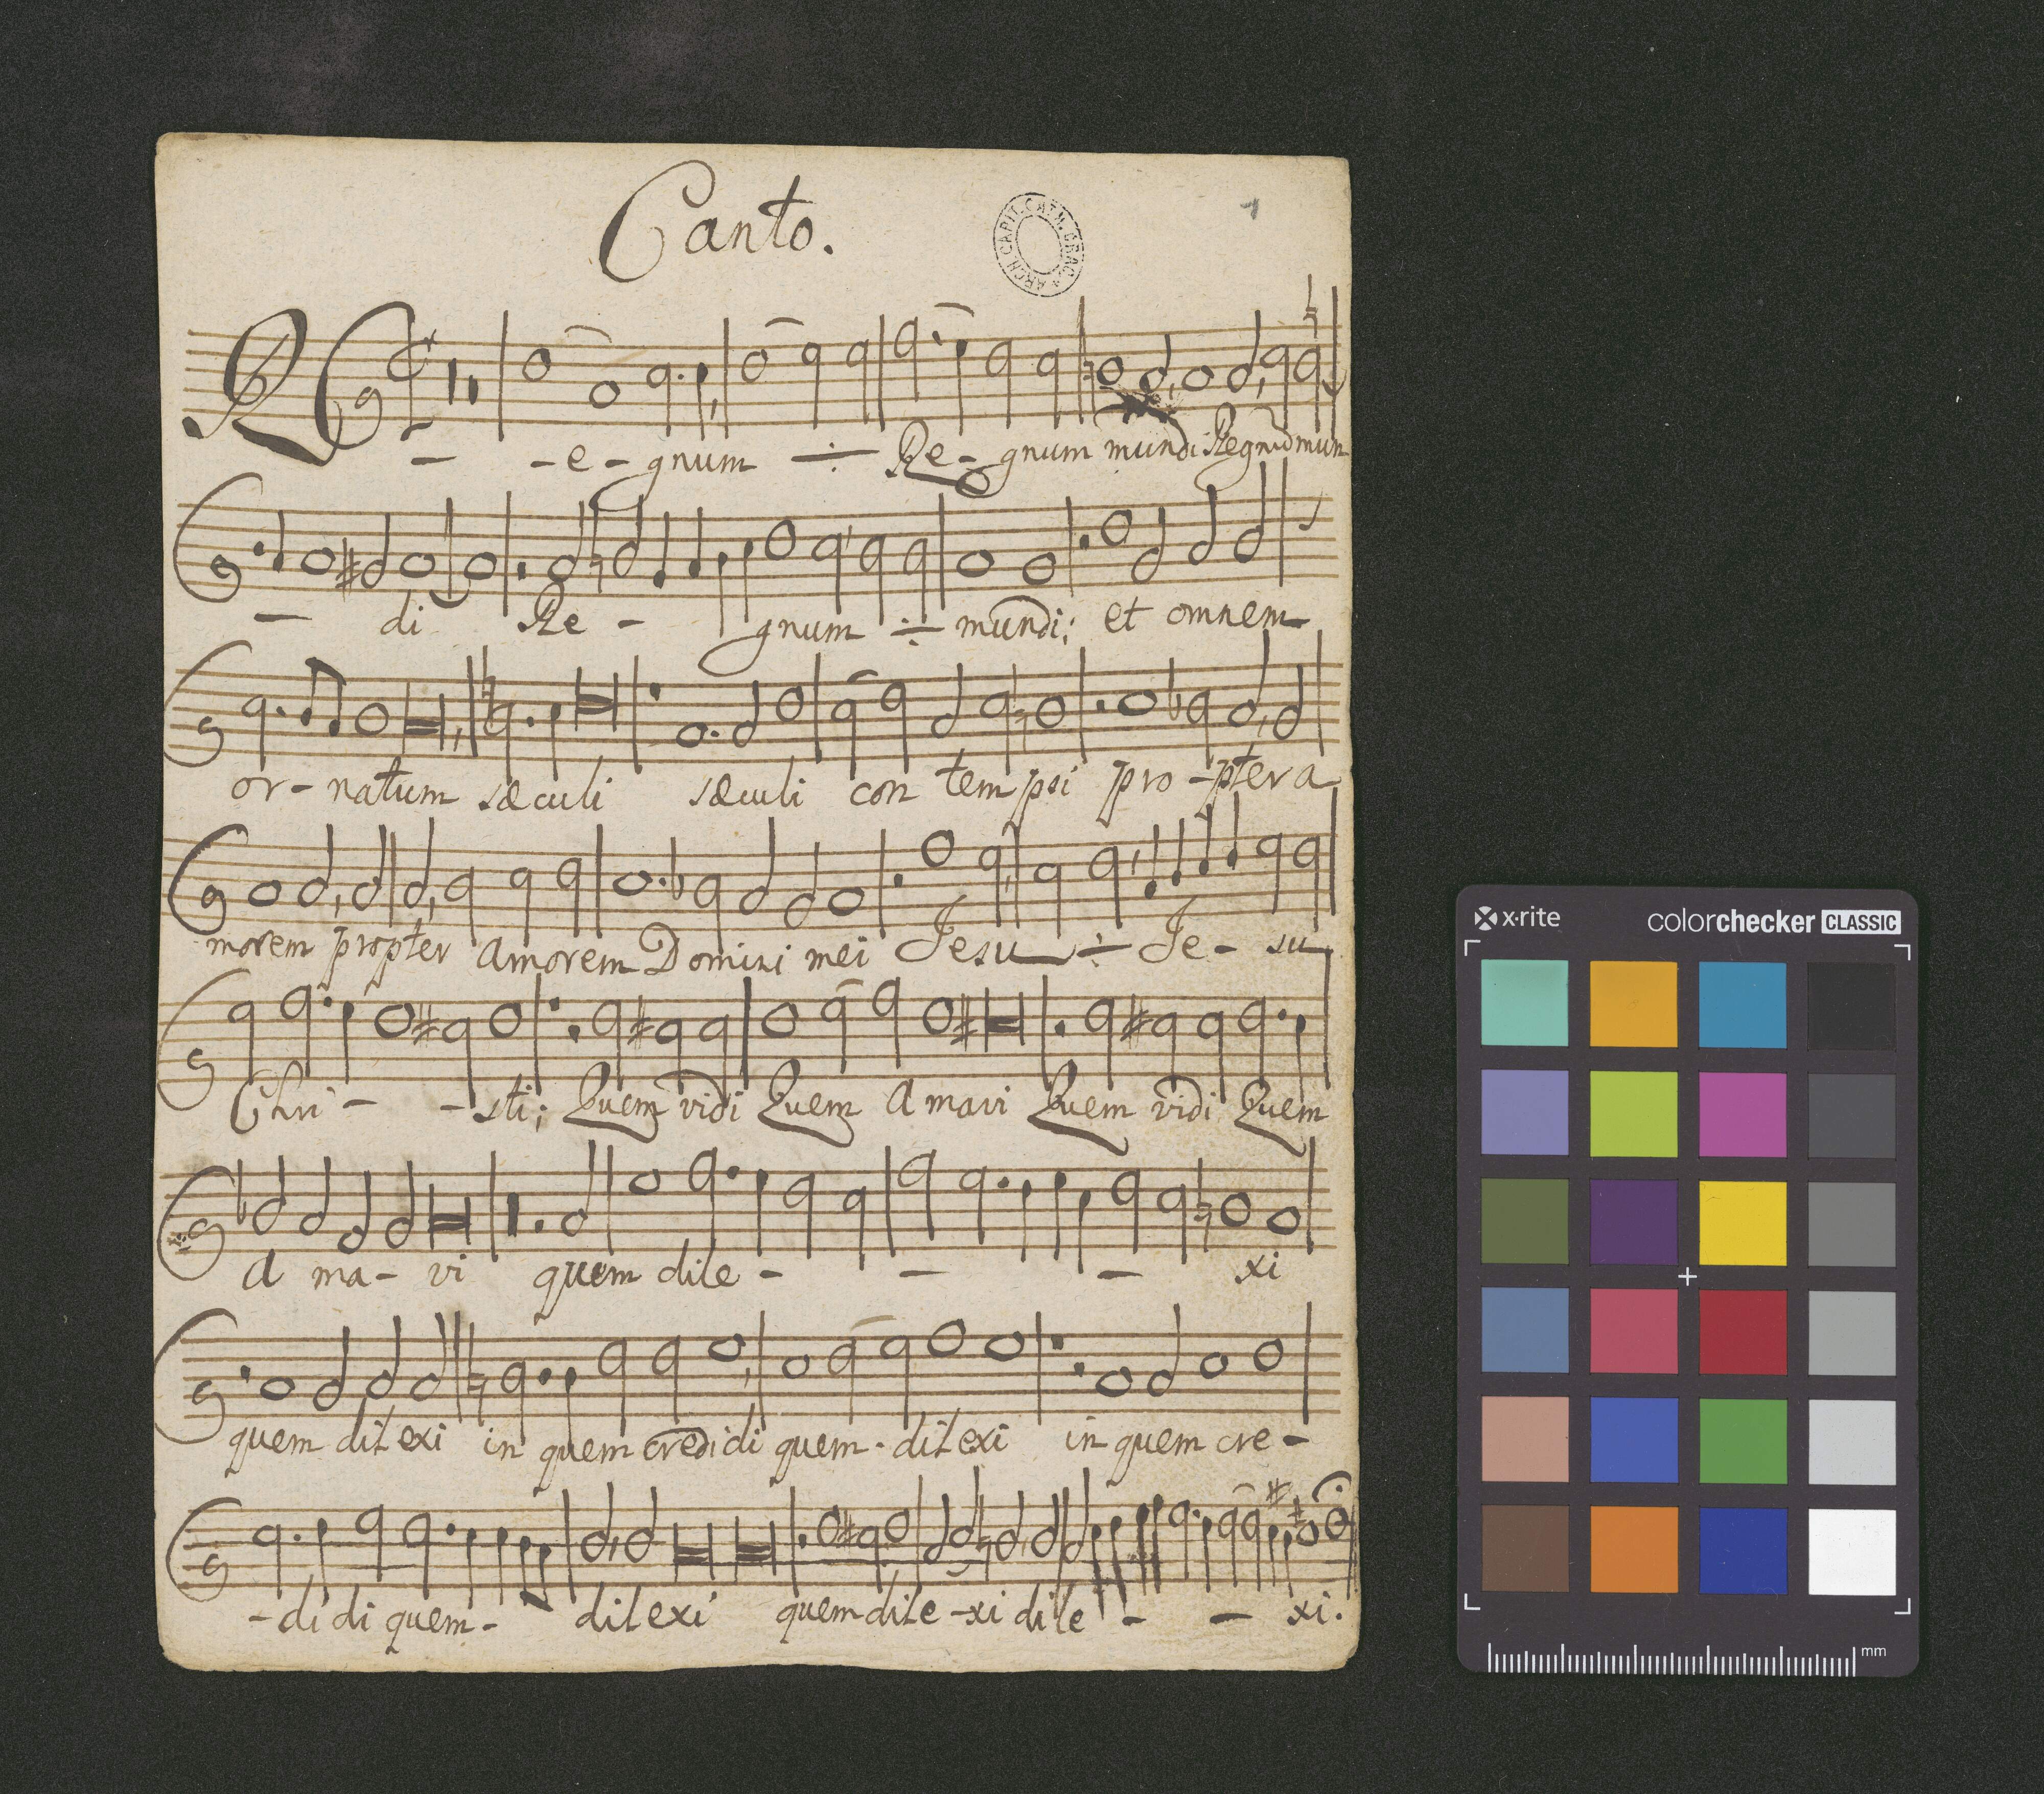 Canto.
ARCH. CAPIT. CATH. CRAC.
1
R - - e - gnum ÷ Re - gnum mundi Regnū mun
- di Re - gnum ÷ mundi; et omnem
or - natum sæculi sæculi con tempsi pro - pter a
morem propter amorem Domini mei Jesu ÷ Je - su
Chri - - sti; Quem vidi Quem amavi Quem vidi Quem
a ma - vi quem dile - - - xi
quem dilexi in quem credidi quem - dilexi in quem cre -
- di di quem - dilexi quem dile - xi dile - - xi.
x-rite colorchecker CLASSIC
mm